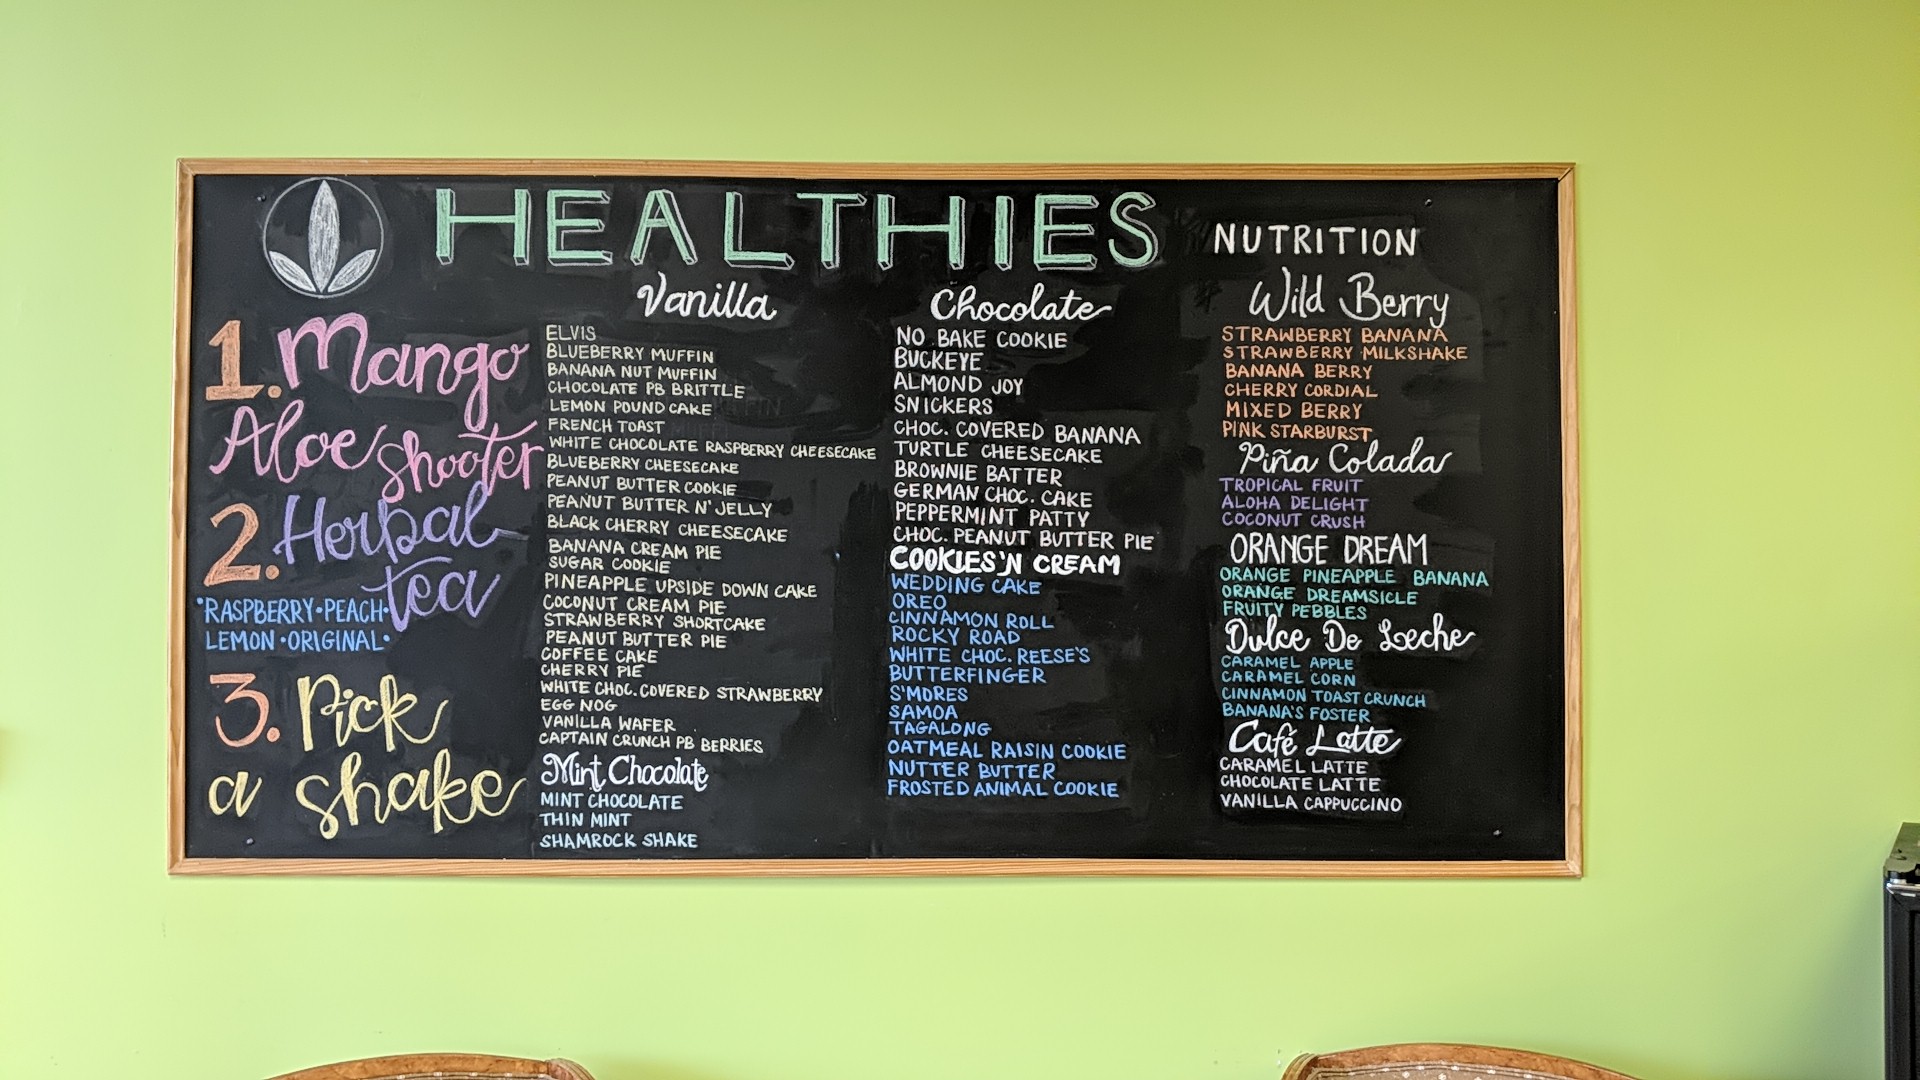 HEALTHIES NUTRITION
1. Mango
Aloe shooter
2. Herbal
tea
•RASPBERRY•PEACH•
LEMON•ORIGINAL•
3. Pick
a shake
Vanilla
ELVIS
BLUEBERRY MUFFIN
BANANA NUT MUFFIN
CHOCOLATE PB BRITTLE
LEMON POUND CAKE
FRENCH TOAST
WHITE CHOCOLATE RASPBERRY CHEESECAKE
BLUEBERRY CHEESECAKE
PEANUT BUTTER COOKIE
PEANUT BUTTER N' JELLY
BLACK CHERRY CHEESECAKE
BANANA CREAM PIE
SUGAR COOKIE
PINEAPPLE UPSIDE DOWN CAKE
COCONUT CREAM PIE
STRAWBERRY SHORTCAKE
PEANUT BUTTER PIE
COFFEE CAKE
CHERRY PIE
WHITE CHOC. COVERED STRAWBERRY
EGG NOG
VANILLA WAFER
CAPTAIN CRUNCH PB BERRIES
Mint Chocolate
MINT CHOCOLATE
THIN MINT
SHAMROCK SHAKE
Chocolate
NO BAKE COOKIE
BUCKEYE
ALMOND JOY
SNICKERS
CHOC. COVERED BANANA
TURTLE CHEESECAKE
BROWNIE BATTER
GERMAN CHOC. CAKE
PEPPERMINT PATTY
CHOC. PEANUT BUTTER PIE
COOKIES 'N CREAM
WEDDING CAKE
OREO
CINNAMON ROLL
ROCKY ROAD
WHITE CHOC. REESE'S
BUTTERFINGER
S'MORES
SAMOA
TAGALONG
OATMEAL RAISIN COOKIE
NUTTER BUTTER
FROSTED ANIMAL COOKIE
Wild Berry
STRAWBERRY BANANA
STRAWBERRY MILKSHAKE
BANANA BERRY
CHERRY CORDIAL
MIXED BERRY
PINK STARBURST
Piña Colada
TROPICAL FRUIT
ALOHA DELIGHT
COCONUT CRUSH
ORANGE DREAM
ORANGE PINEAPPLE BANANA
ORANGE DREAMSICLE
FRUITY PEBBLES
Dulce De Leche
CARAMEL APPLE
CARAMEL CORN
CINNAMON TOAST CRUNCH
BANANA'S FOSTER
Café Latte
CARAMEL LATTE
CHOCOLATE LATTE
VANILLA CAPPUCCINO